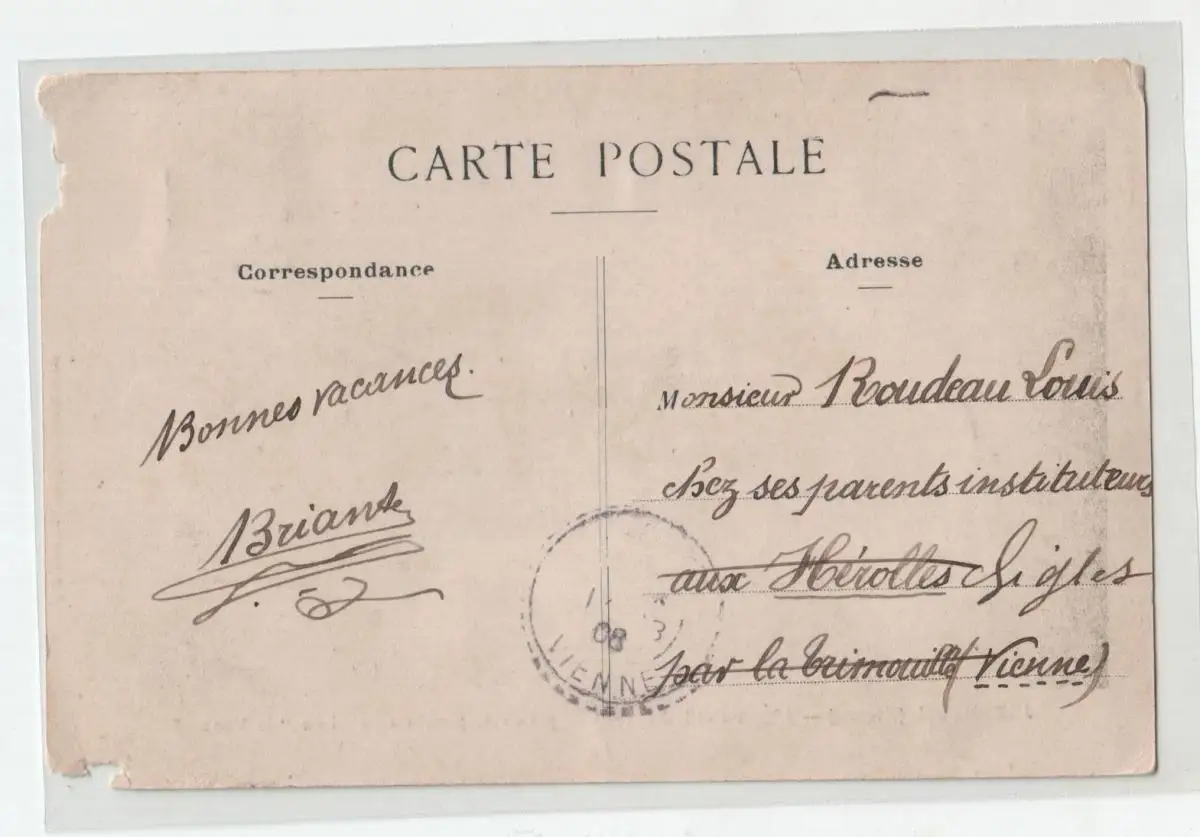 CARTE POSTALE
Correspondance
Bonnes vacances.
Briant
Adresse
Monsieur Roudeau Louis
chez ses parents instituteurs
aux Hérolles
par la Trimouille (Vienne)
08
VIENNE